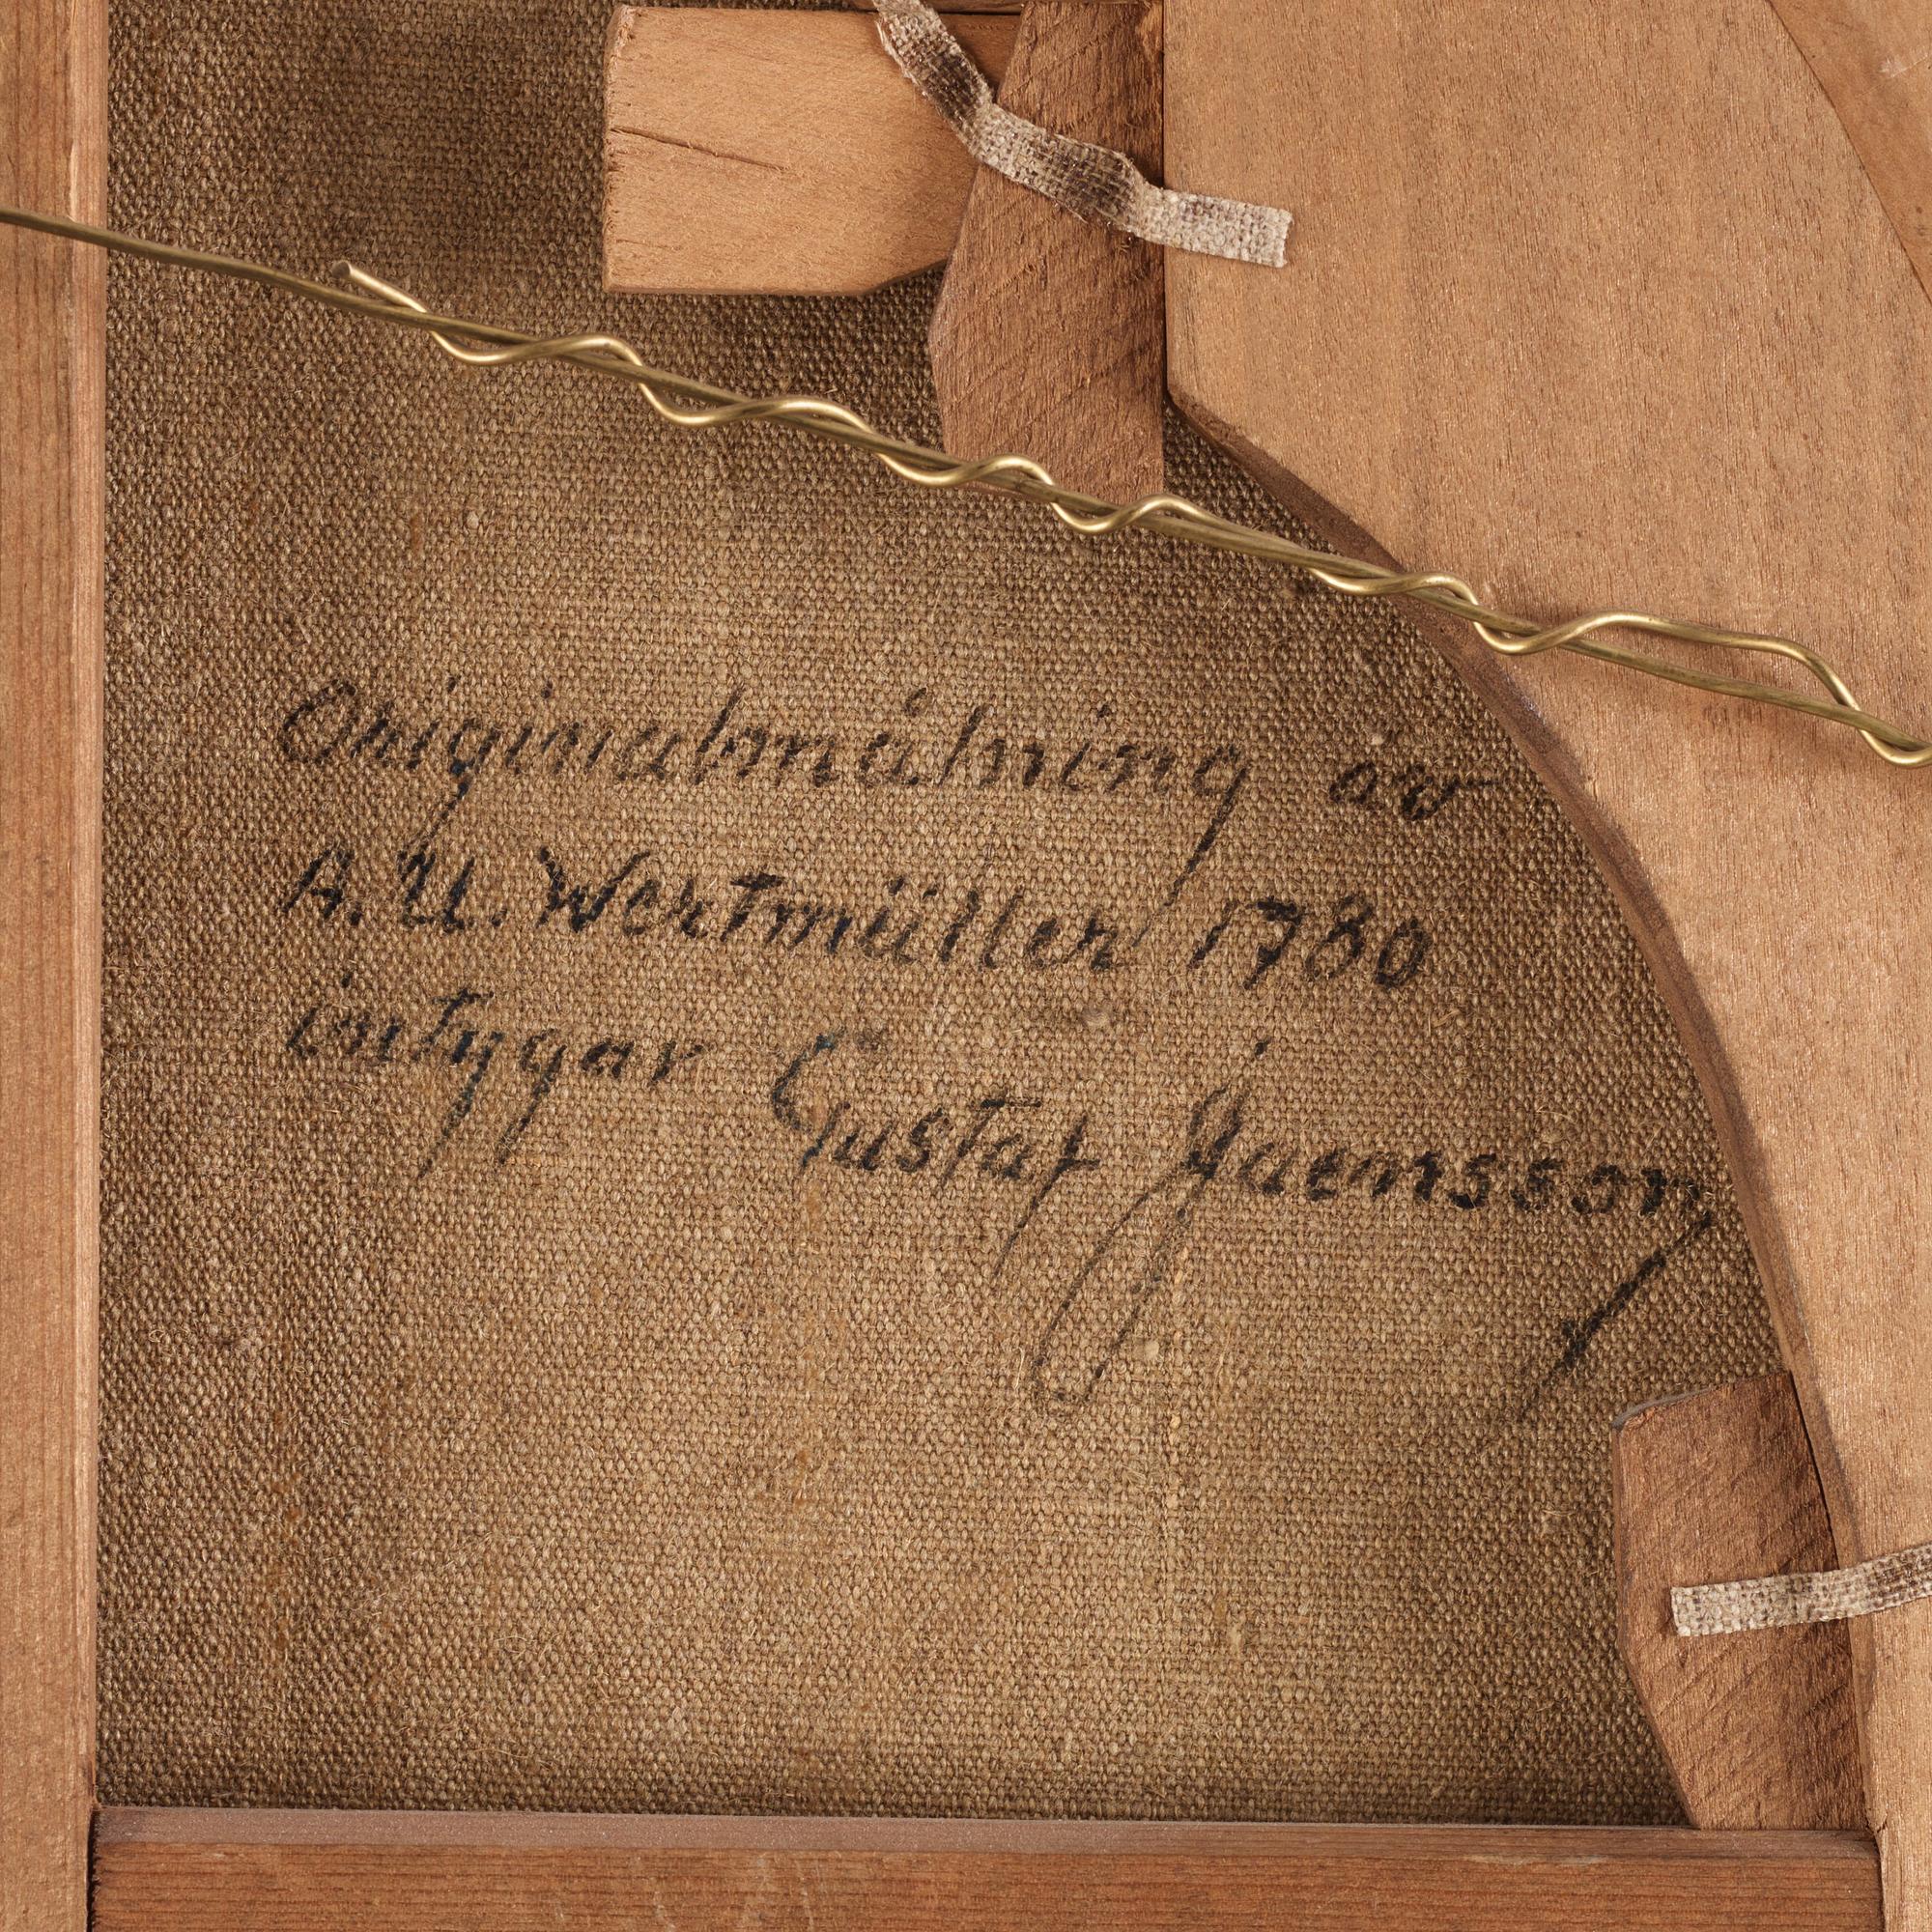 Originalmålning av
A. U. Wertmüller 1780
intygar Gustaf Jaensson